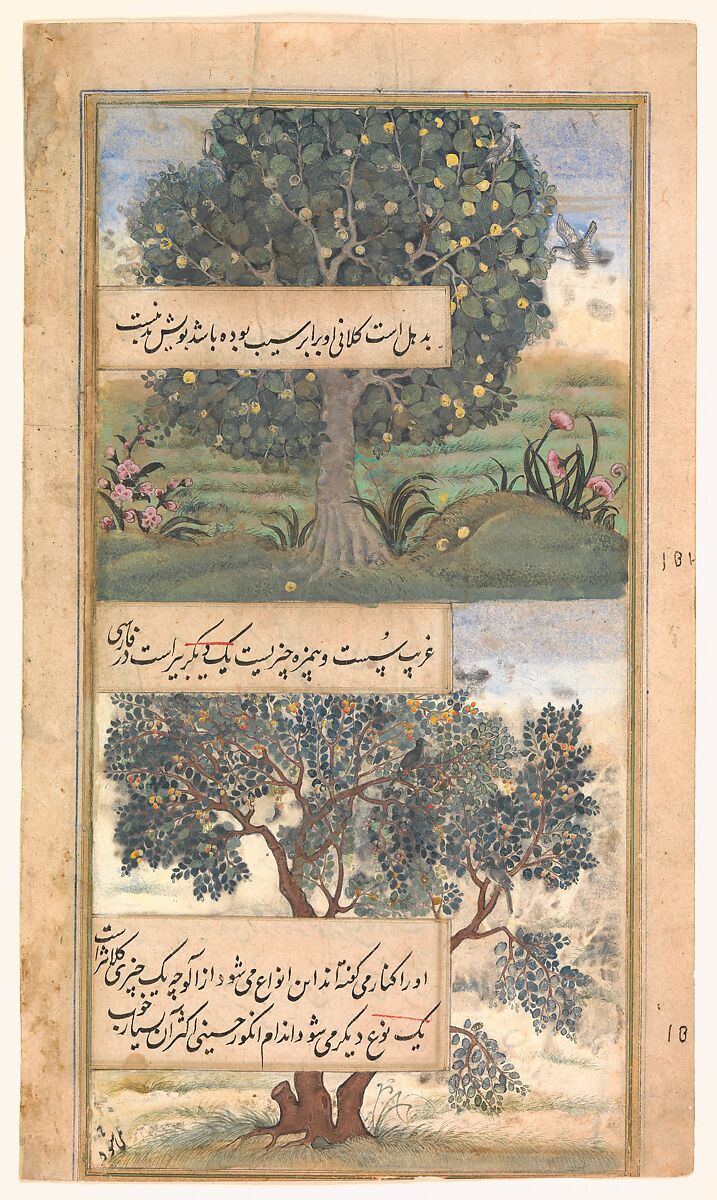 بدهل است کلانی او برابر سیب بوده باشد بویش بد نیست
غریب پست و بیمزه چیزیست یک دیگر بیر است در فارسی
او را کنار می گفته اند این انواع می شود از آلوچه یک چیزی کلانتر است
یک نوع دیگر می شود اندام انگور حسینی اکثر آن بسیار خوب